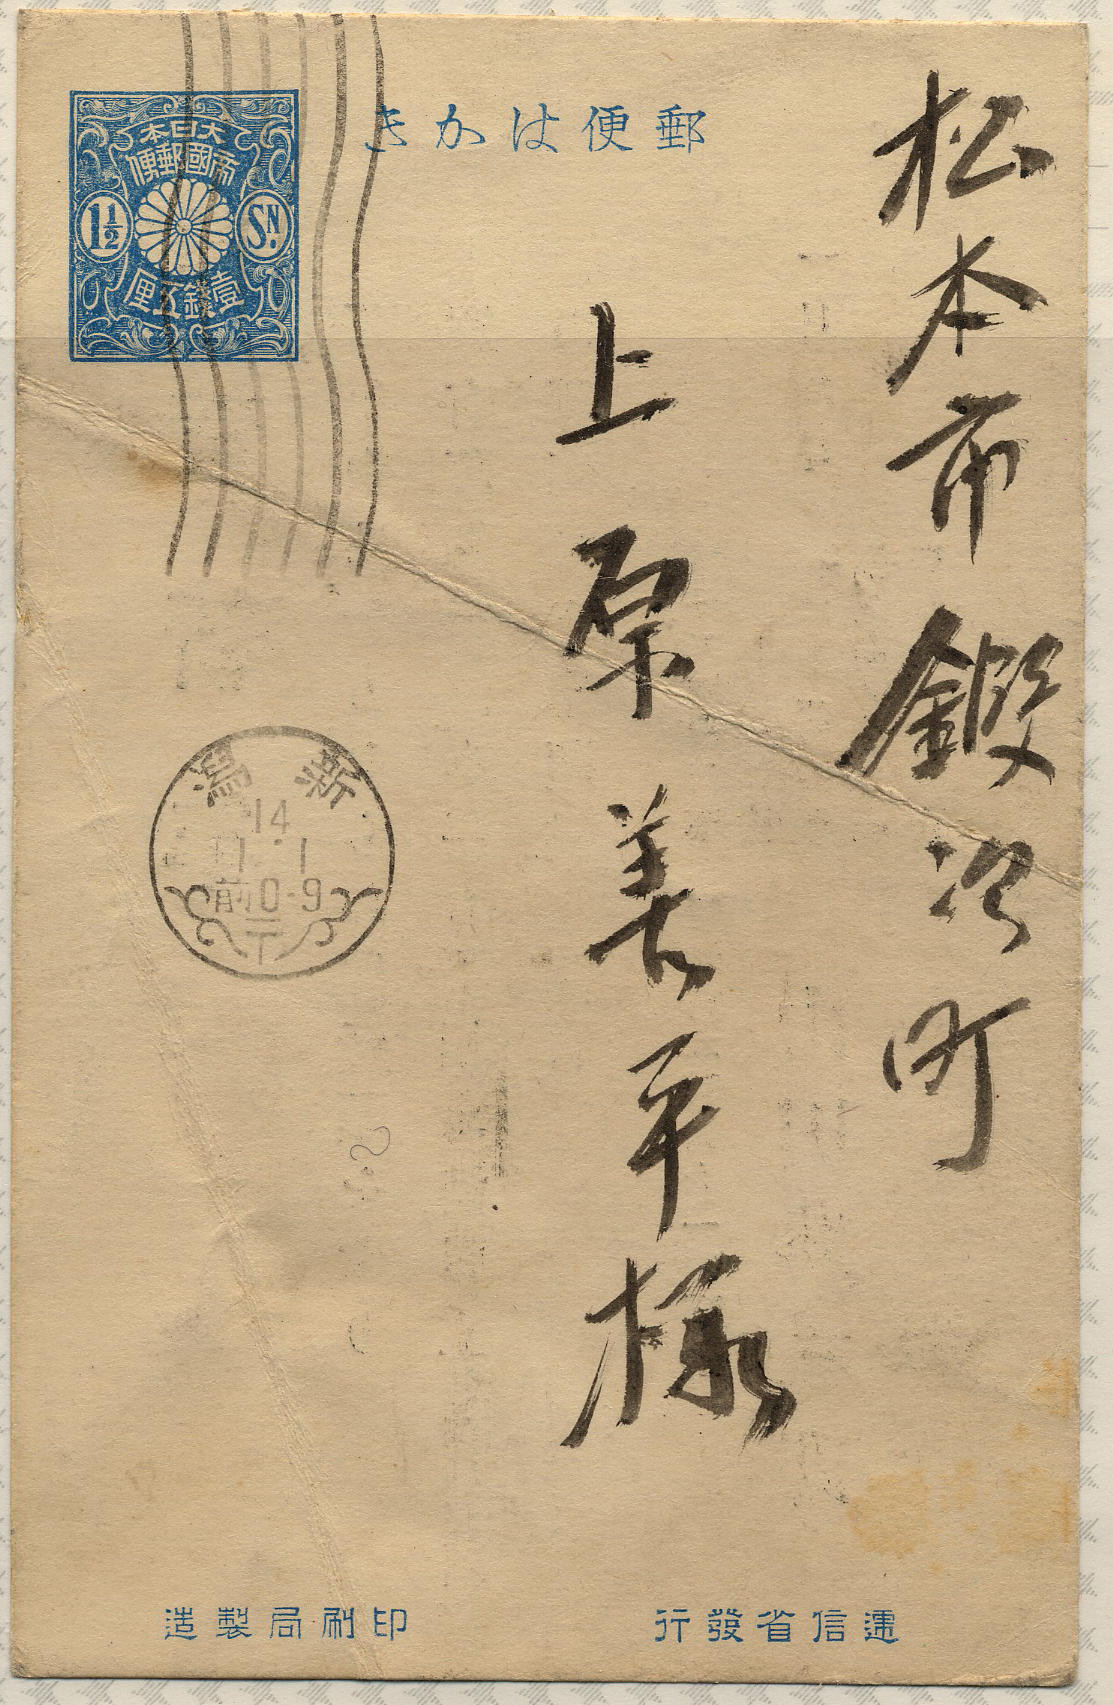 郵便はかき
大日本
帝國郵便
1½
SN.
壹錢五厘
松本市鍛冶町
上原善平様
新潟
14
11.1
前0-9
遞信省發行
印刷局製造